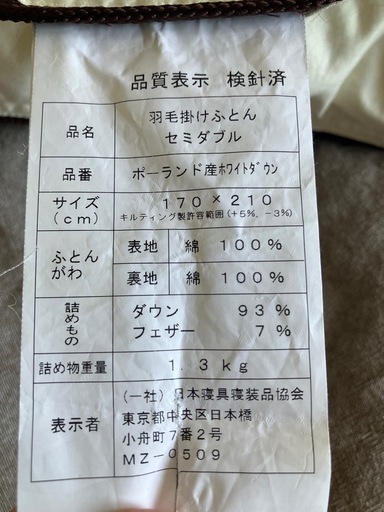 品質表示 検針済
品名
羽毛掛けふとん
セミダブル
品番
ポーランド産ﾎﾜｲﾄﾀﾞｳﾝ
サイズ
(cm)
170×210
キルティング製許容範囲(+5%, −3%)
ふとん
がわ
表地 綿 100%
裏地 綿 100%
詰めもの
ダウン 93%
フェザー 7%
詰め物重量
1.3kg
表示者
(一社)日本寝具寝装品協会
東京都中央区日本橋
小舟町7番2号
MZ-0509